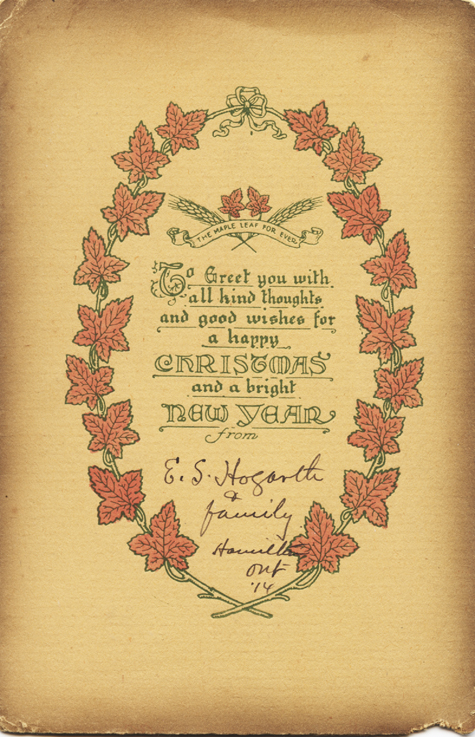 THE MAPLE LEAF FOR EVER
To Greet you with
all kind thoughts
and good wishes for
a happy
CHRISTMAS
and a bright
NEW YEAR
from
E. S. Hogarth
&
family
Hamilton
Ont
'14